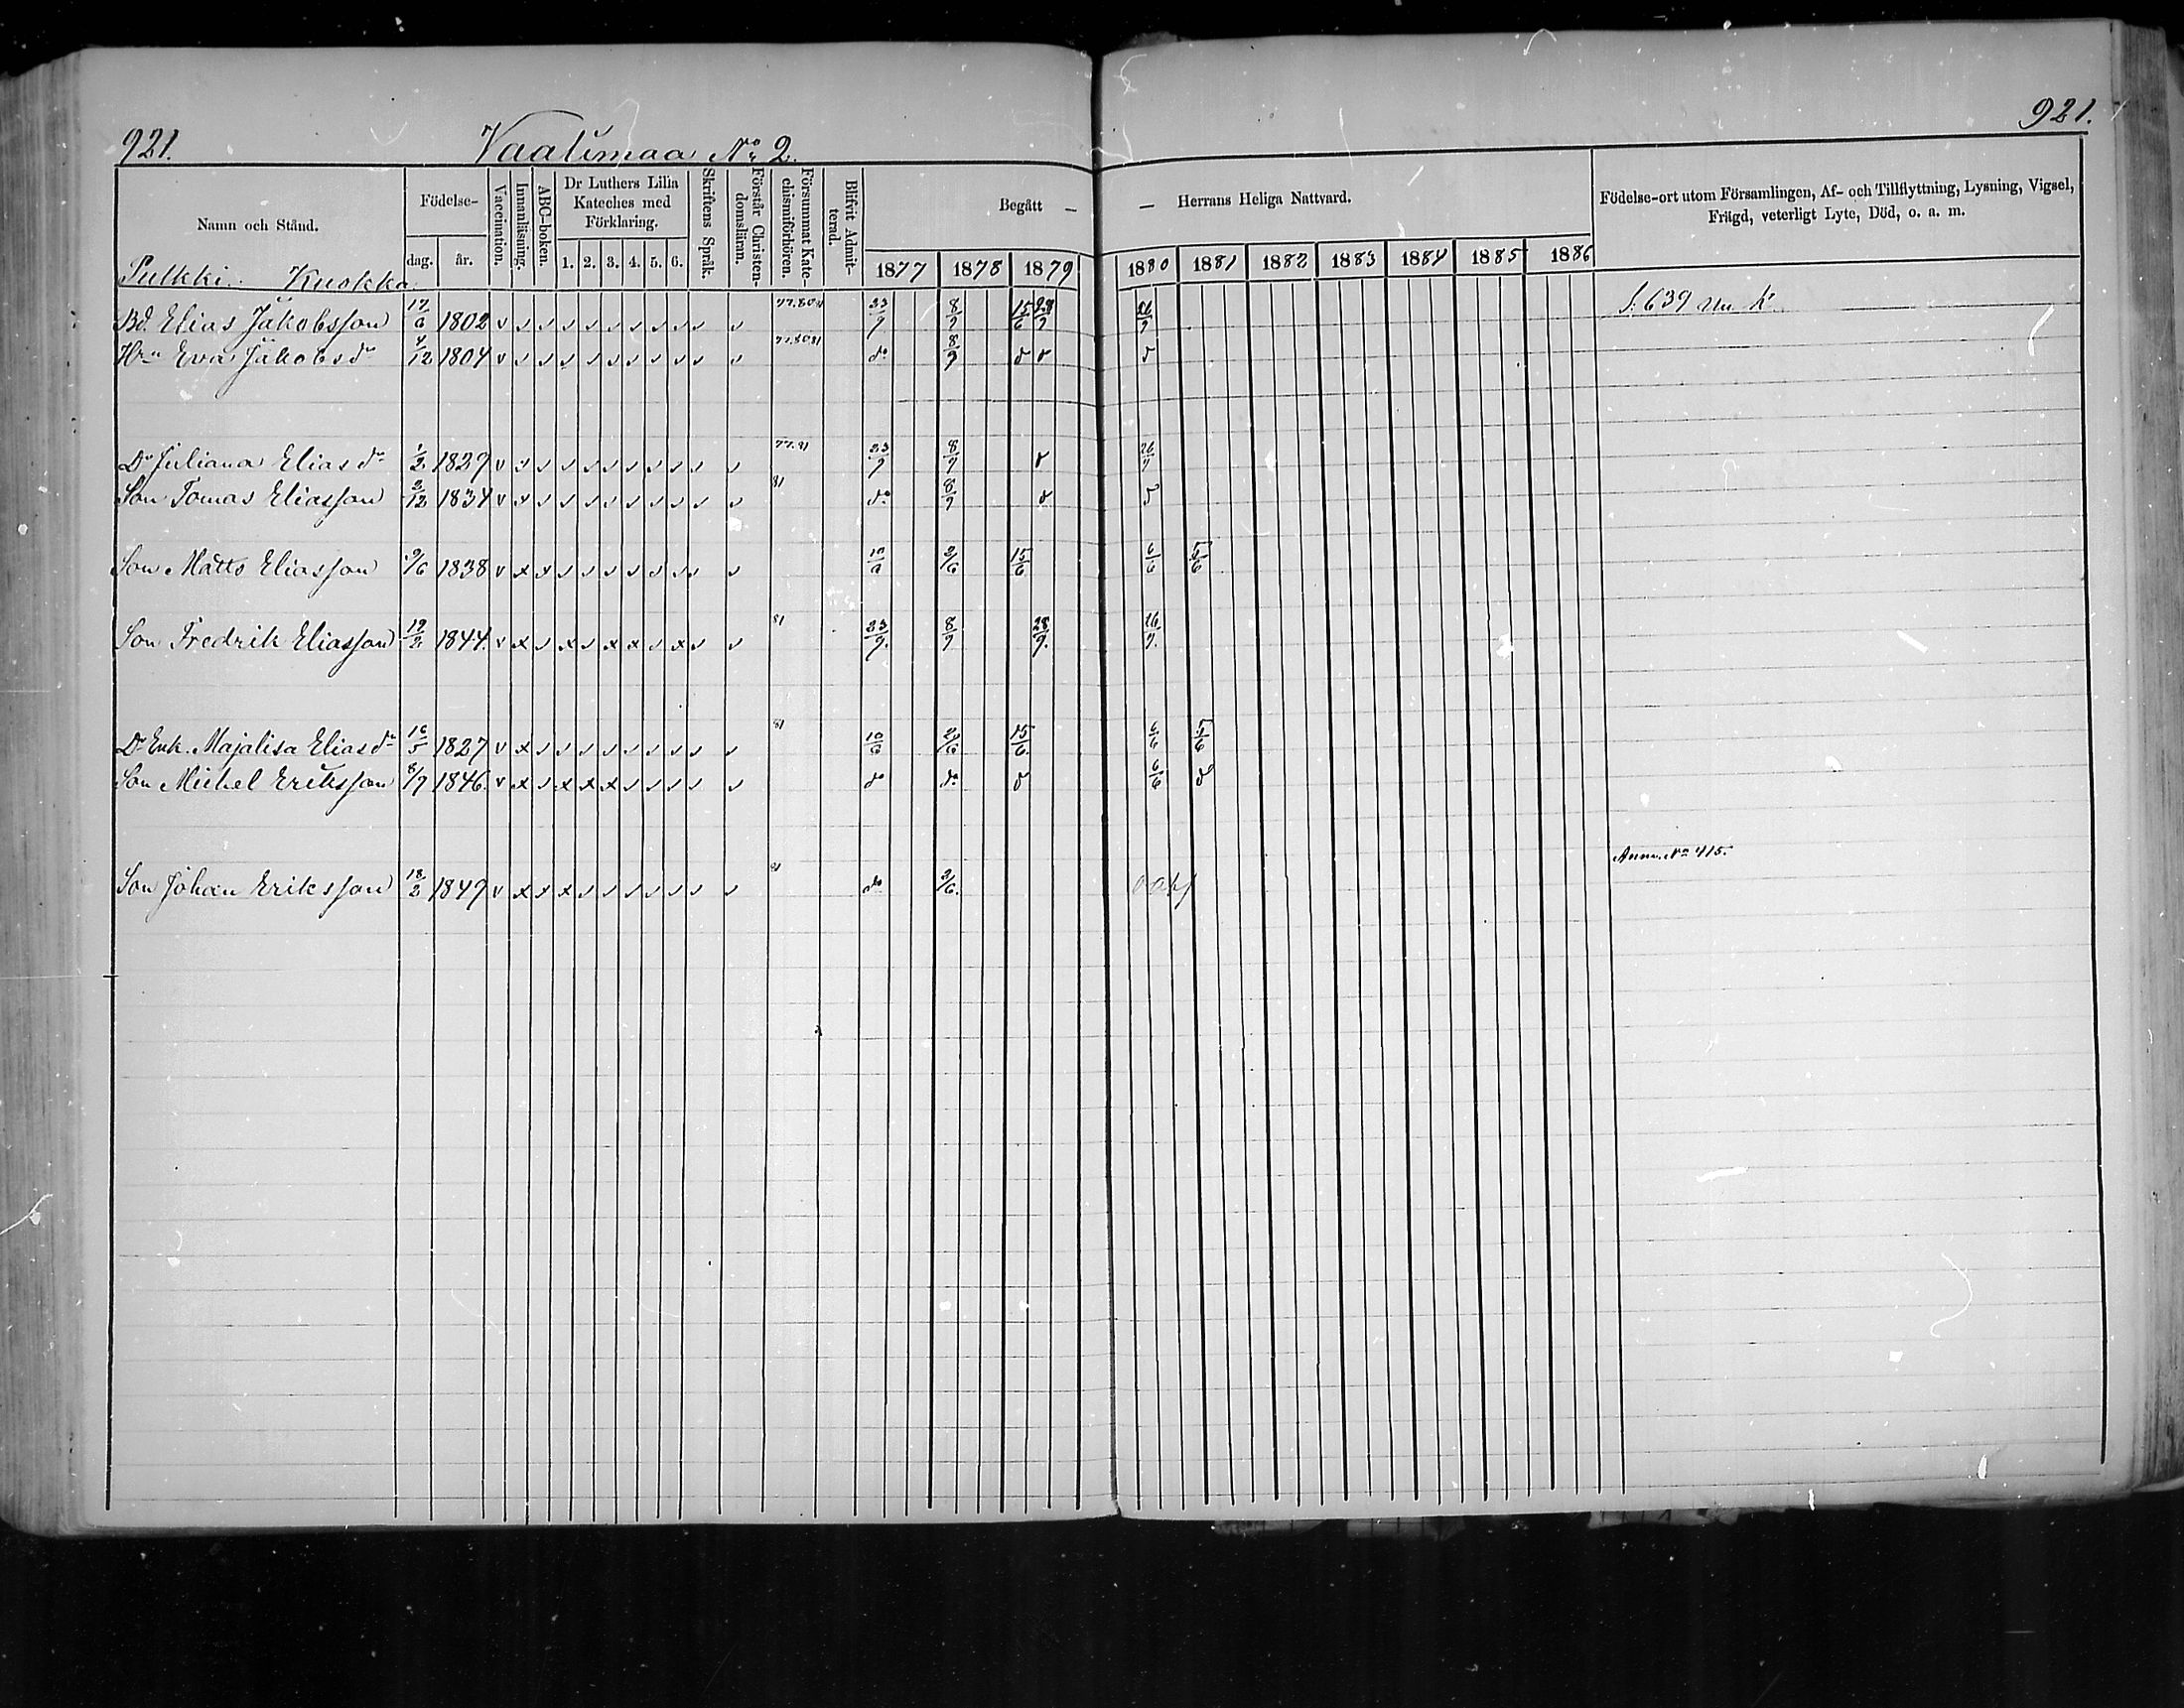 921.
Vaalimaa No 2.
921.
Namn och Stånd.
Födelse-
dag.
år.
Vaccination.
Innanläsning.
ABC-boken.
Dr Luthers Lilla Kateches med Förklaring.
1. 2. 3. 4. 5. 6.
Skriftens Språk.
Förstår Christendomsläran.
Försummat Katechismiförhören.
Blifvit Admitterad.
Begått —
— Herrans Heliga Nattvard.
1877 1878 1879 1880 1881 1882 1883 1884 1885 1886
Födelse-ort utom Församlingen, Af- och Tillflyttning, Lysning, Vigsel,
Frägd, veterligt Lyte, Död, o. a. m.
Pulkki. Kuokka
Bd. Elias Jakobsson 1802 v 23/9 8/9 15/6 28/9 26/9 S. 639
Hru Eva Jakobsdr 4/12 1804 v do 8/9
Dr Juliana Eliasdr 1/2 1829 v 77.81 23/9 8/9 26/9
Son Tomas Eliasson 3/12 1834 v 81 do 8/9
Son Matts Eliasson 9/6 1838 v x x 10/6 2/6 15/6 6/6 5/6
Son Fredrik Eliasson 19/2 1844 v x x x x x 81 23/9 8/9 28/9 26/9
Dr Enk. Majalisa Eliasdr 16/5 1827 v x 81 10/6 2/6 15/6 6/6 5/6
Son Michel Eriksson 8/9 1846 v x x x x do do 6/6
Anm. No 415.
Son Johan Eriksson 18/2 1849 v x x x do 2/6